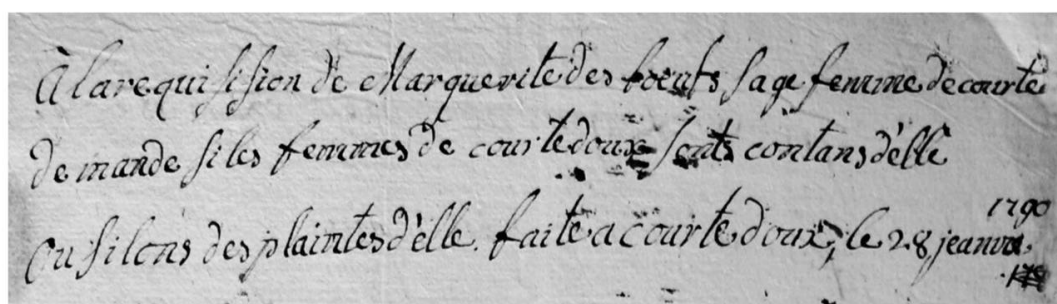 À la requisision de Marguerite des boeufs sage femme de courte
demande si les femmes de courtedoux sonts contans d'elle
ou si lons des plaintes d'elle. faite a courtedoux, le 28 jeanvie
1790